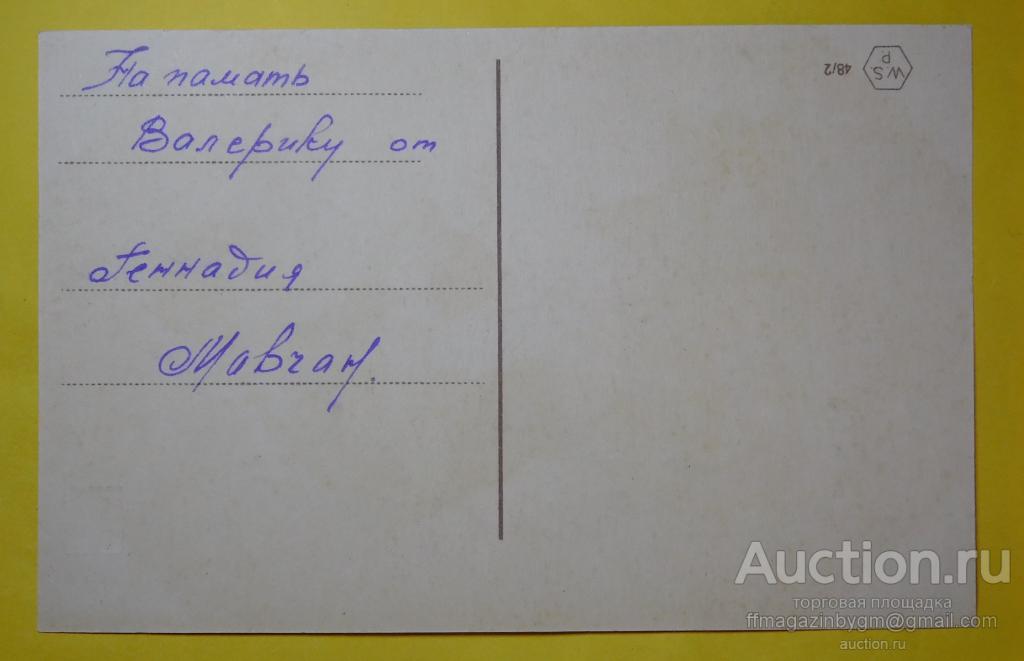 На памать
Валерику от
Геннадия
Мовчан.
W.S.
P.
48/2
Auction.ru
торговая площадка
ffmagazinbygm@gmail.com
auction.ru